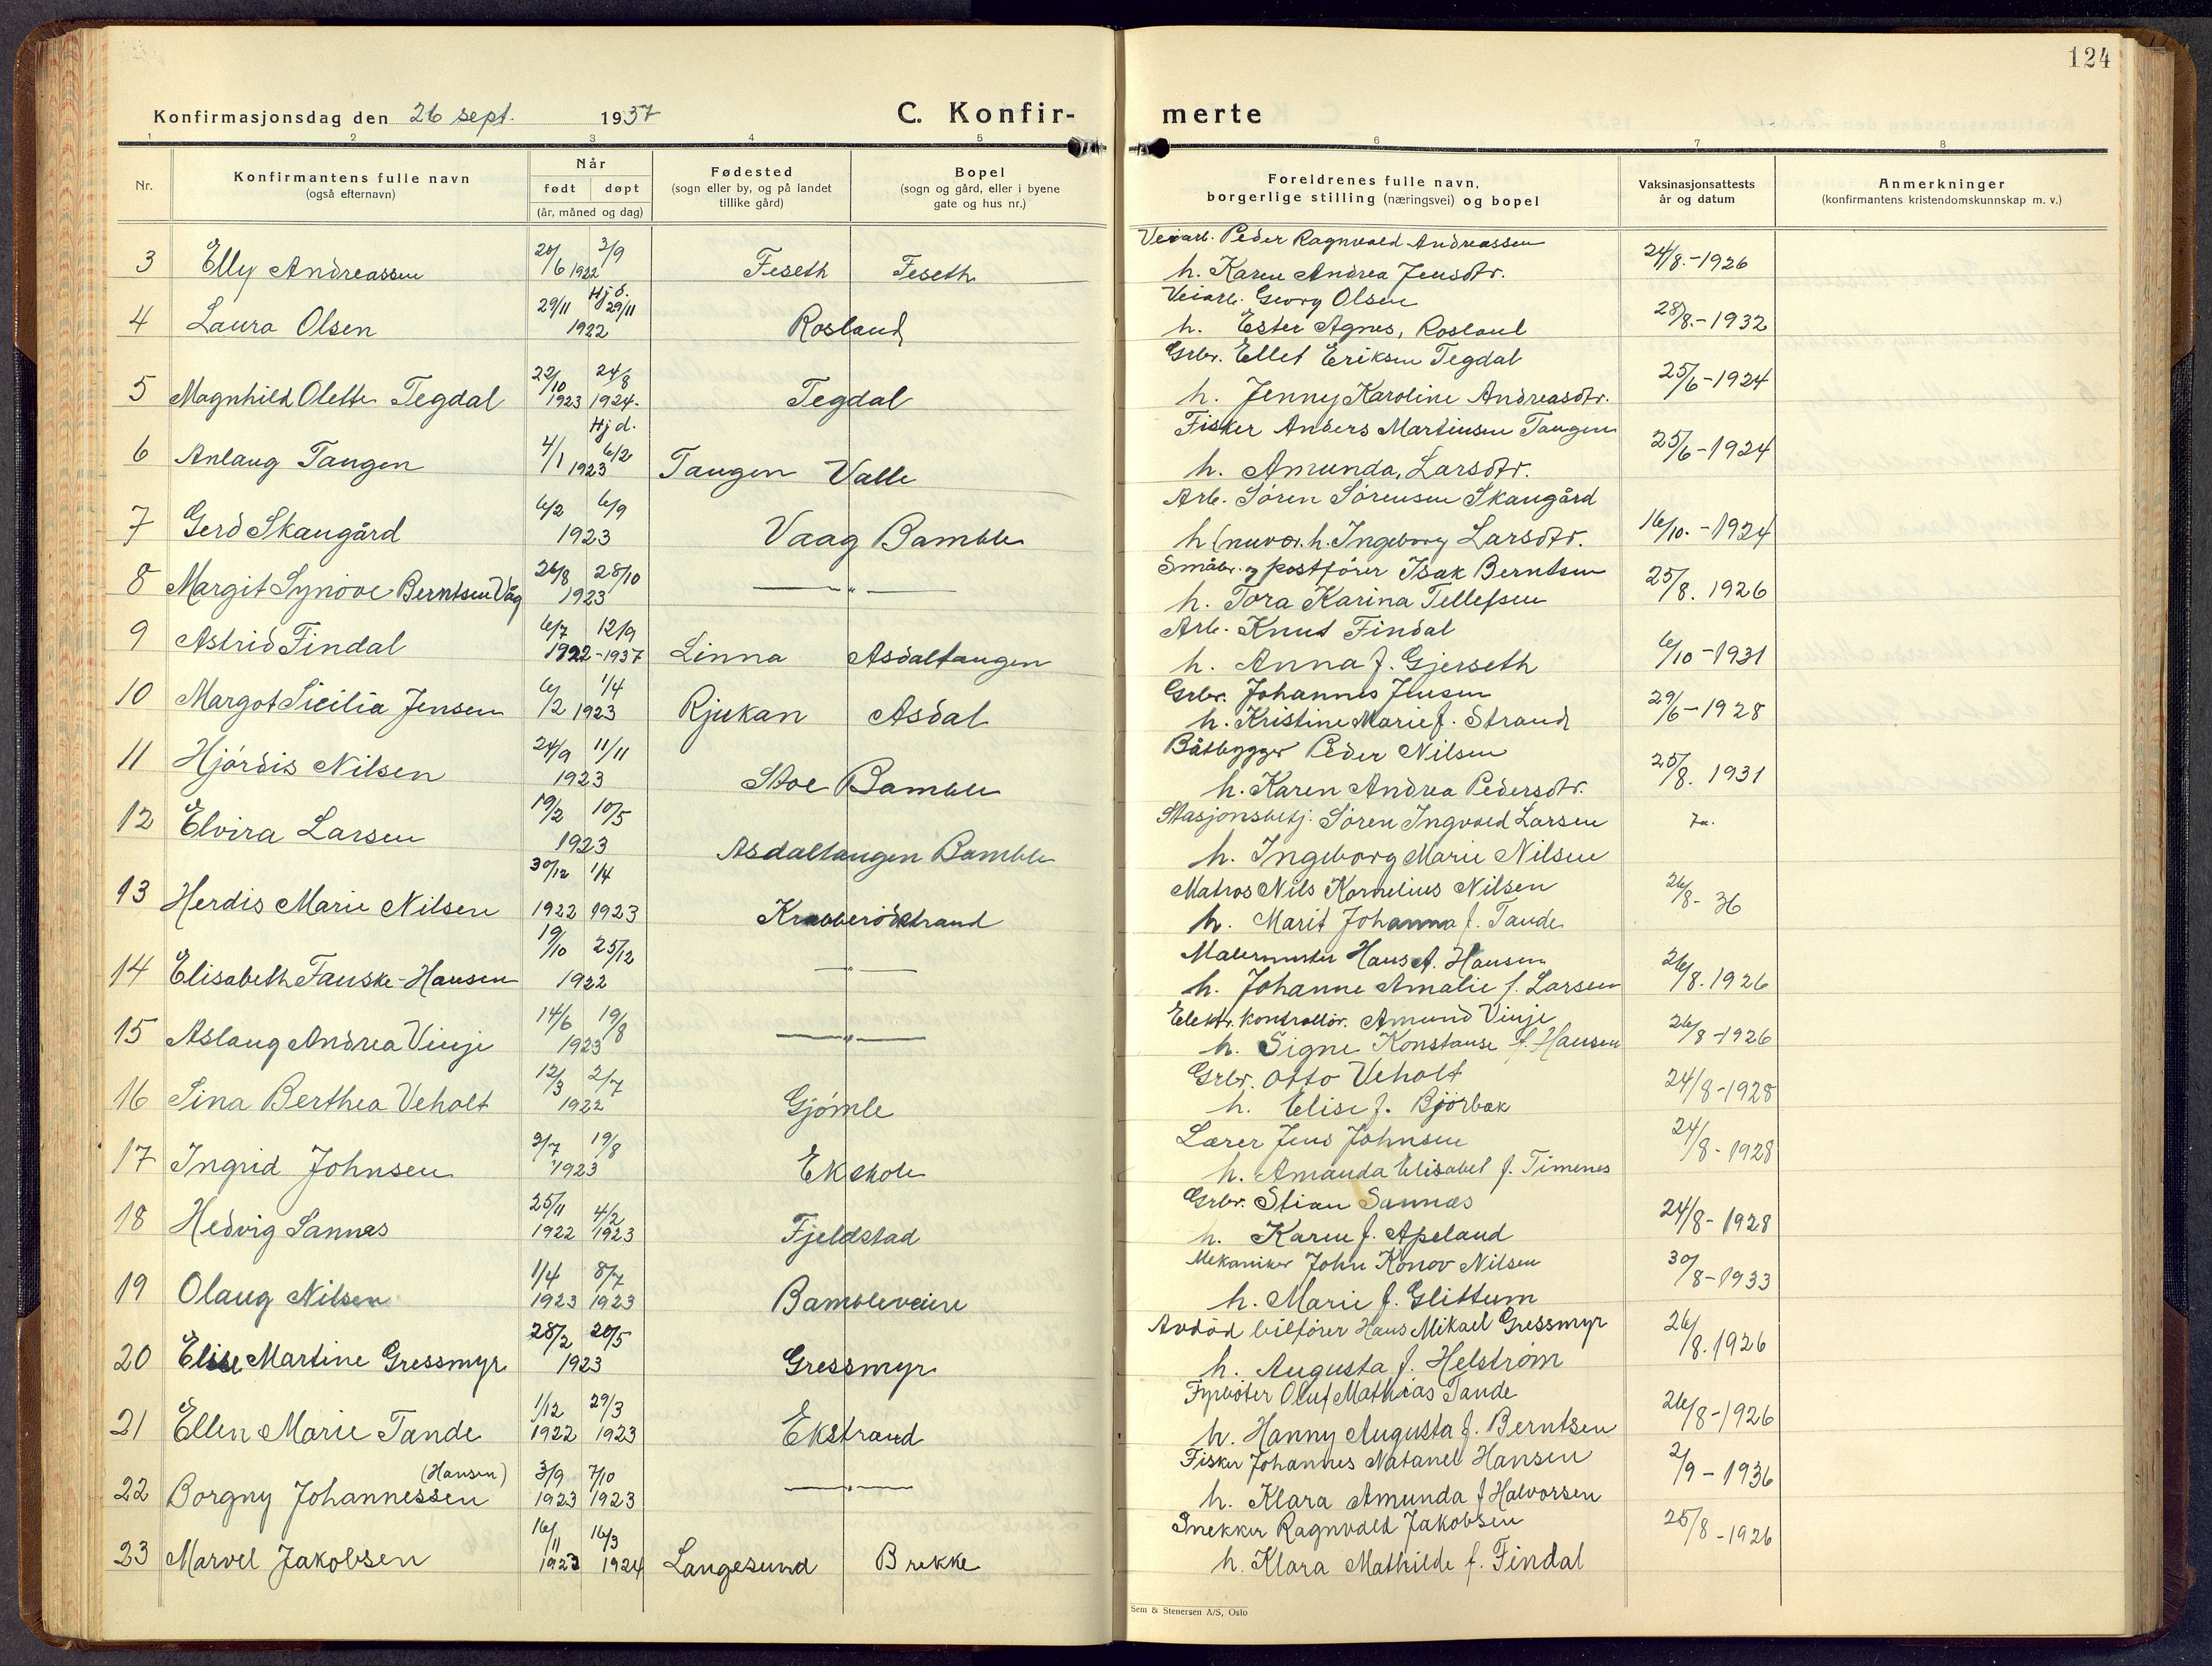 124
Konfirmasjonsdag den 26 sept. 1937 C. Konfir- merte
1 2 3 4 5 6 7 8
Nr.
Konfirmantens fulle navn
(også efternavn)
Når
født døpt
(år, måned og dag)
Fødested
(sogn eller by, og på landet
tillike gård)
Bopel
(sogn og gård, eller i byene
gate og hus nr.)
Foreldrenes fulle navn,
borgerlige stilling (næringsvei) og bopel
Vaksinasjonsattests
år og datum
Anmerkninger
(konfirmantens kristendomskunnskap m. v.)
3 Elly Andreassen 20/6 1922 3/9 Feseth Feseth
Veiarb. Peder Ragnvald Andreassen
h. Karen Andrea Jensdtr. 24/8.-1926
4 Laura Olsen 29/11 Hjd. 29/11 1922 Rosland
Veiarb. Georg Olsen
h. Ester Agnes, Rosland 28/8.-1932
5 Magnhild Olette Tegdal 22/10 1923 24/8 1924. Tegdal
Grbr. Ellef Eriksen Tegdal
h. Jenny Karoline Andreasdtr. 25/6-1924
6 Anlaug Tangen 4/1 1923 Hjd. 6/2 Tangen Valle
Fisker Anders Martinsen Tangen
h. Amunda, Larsdtr. 25/6-1924
7 Gerd Skaugård 6/2 6/9 1923 Vaag Bamble
Arb. Søren Sørensen Skaugård
h (nuvær. h. Ingeborg Larsdtr. 16/10.-1924
8 Margit Synøve Berntsen Våg 26/8 28/10 1923 —"—
Småbr. og postfører Isak Berntsen
h. Tora Karina Tellefsen 25/8. 1926
9 Astrid Findal 6/7 1922 12/9 -1937 Linna Asdaltangen
Arb. Knut Findal
h. Anna f. Gjerseth 6/10-1931
10 Margot Sicilia Jensen 6/2 1923 1/4 Rjukan Asdal
Grbr. Johannes Jensen
h. Kristine Marie f. Strand 29/6-1928
11 Hjørdis Nilsen 24/9 11/11 1923 Stoe Bamble
Båtbygger Peder Nilsen
h. Karen Andrea Pedersdtr. 25/8. 1931
12 Elvira Larsen 19/2 10/5 1923 Asdaltangen Bamble
Stasjonsbetj. Søren Ingvald Larsen
h. Ingeborg Marie Nilsen
13 Herdis Marie Nilsen 30/12 1922 1/4 1923 Krabberødstrand
Matros Nils Kornelius Nilsen
h. Marit Johanna f. Tande 26/8- 36
14 Elisabeth Fauske-Hansen 19/10 25/12 1922 —"—
Malermester Hans A. Hansen
h. Johanne Amalie f. Larsen 26/8. 1926
15 Aslaug Andrea Vinje 14/6 19/8 1923 —"—
Elektr. kontrollør. Amund Vinje
h. Signe Konstanse f. Hansen 26/8-1926
16 Sina Berthea Veholt 12/3 2/7 1922 Gjømle
Grbr. Otto Veholt
h. Elise f. Bjørbæk 24/8-1928
17 Ingrid Johnsen 3/7 19/8 1923 Ek skole
Lærer Jens Johnsen
h. Amanda Elisabet f. Timenes 24/8-1928
18 Hedvig Sannes 25/11 1922 4/2 1923 Fjeldstad
Grbr. Stian Sannes
h. Karen f. Apeland 24/8-1928
19 Olaug Nilsen 1/4 1923 8/7 1923 Bambleveien
Mekaniker John Konov Nilsen
h. Marie f. Glittum 30/8-1933
20 Elise Martine Gressmyr 28/2 20/5 1923 Gressmyr
Avdød bilfører Hans Mikael Gressmyr
h. Augusta f. Helstrøm 26/8. 1926
21 Ellen Marie Tande 1/12 1922 29/3 1923 Ekstrand
Fyrbøter Oluf Mathias Tande
h. Hanny Augusta f. Berntsen 26/8-1926
22 Borgny Johannessen (Hansen) 3/9 1923 7/10 1923 —"—
Fisker Johannes Natanel Hansen
h. Klara Amunda f Halvorsen 2/9-1936
23 Marvel Jakobsen 16/11 1923 16/3 1924 Langesund Brekke
Snekker Ragnvald Jakobsen
h. Klara Mathilde f. Findal 25/8-1926
Sem & Stenersen A/S, Oslo